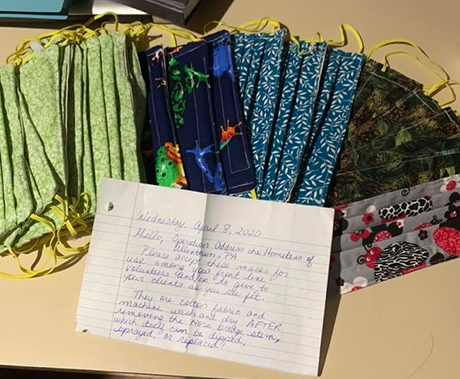 Wednesday, April 8, 2020
Hello, Operation Address the Homeless of
Allentown, PA
Please accept these masks for
use among your front line
volunteers and/or to give to
your clients as you see fit.
They are cotton fabric and
machine wash and dry AFTER
removing the nose bridge stem,
which today can be dipped,
sprayed, or replaced.